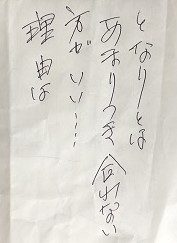 となりとは
あまりつき合わない
方がいい…
理由は